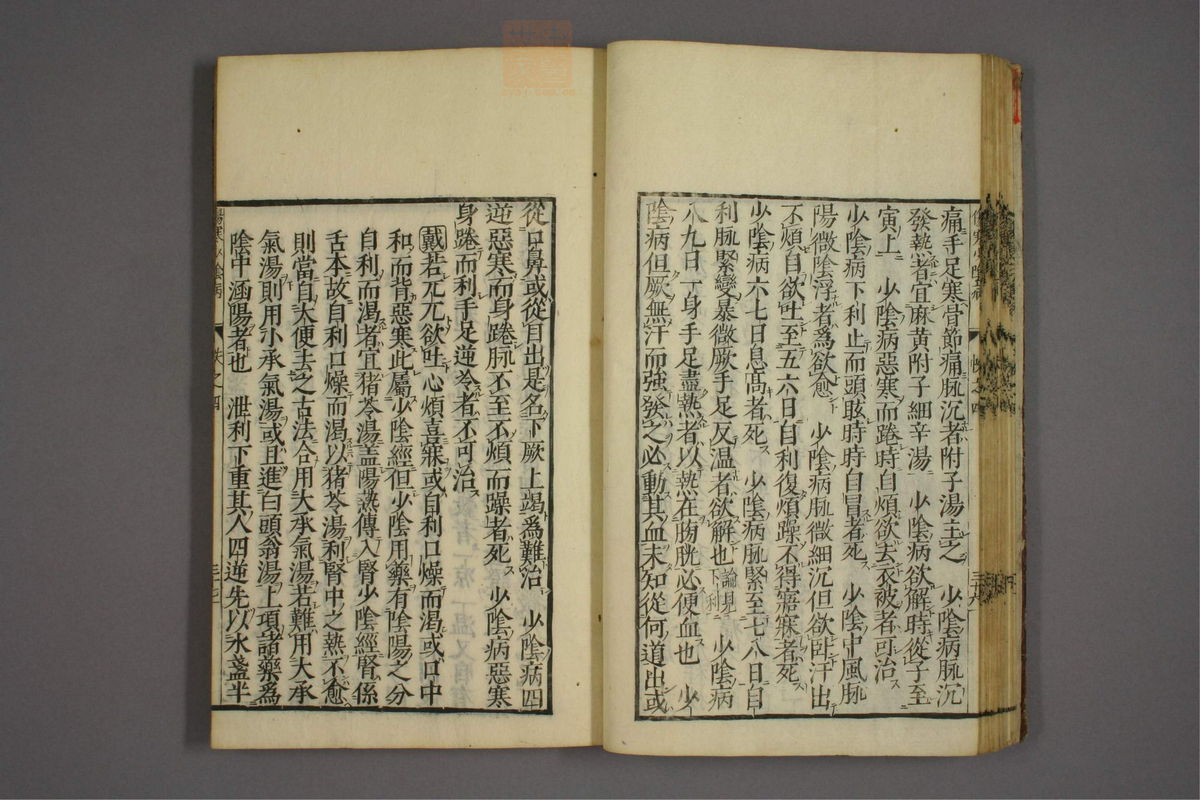 痛手足寒骨節痛脉沉者附子湯主之　少陰病脉沉
發熱者宜麻黄附子細辛湯　少陰病欲解時從子至
寅上　少陰病惡寒而踡時自煩欲去衣被者可治
少陰病下利止而頭眩時時自冒者死　少陰中風脉
陽微陰浮者爲欲愈　少陰病脉微細沉但欲卧汗出
不煩自欲吐至五六日自利復煩躁不得寤寐者死
少陰病六七日息髙者死　少陰病脉緊至七八日自
利脉緊變暴微厥手足反温者欲解也論見下利　少陰病
八九日一身手足盡熱者以熱在膀胱必便血也　少
陰病但厥無汗而強發之必動其血未知從何道出或
從口鼻或從目出是名下厥上竭爲難治　少陰病四
逆惡寒而身踡脉不至不煩而躁者死　少陰病惡寒
身踡而利手足逆冷者不可治
戴若兀兀欲吐心煩喜寐或自利口燥而渴或口中
和而背惡寒此屬少陰經但少陰用藥有陰陽之分
自利而渴者宜猪苓湯盖陽熱傳入腎少陰經腎係
舌本故自利口燥而渴以猪苓湯利腎中之熱不愈
則當自大便去之古法合用大承氣湯若難用大承
氣湯則用小承氣湯或且進白頭翁湯上項諸藥爲
陰中涵陽者也　泄利下重其人四逆先以水盞半
傷寒少陰病　卷之四　三十七